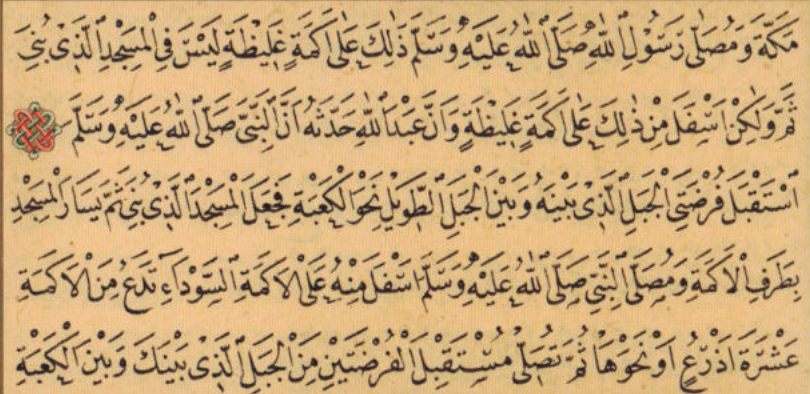 مَكَّةَ وَمُصَلَّى رَسُوْلِ اللّٰهِ صَلَّى اللّٰهُ عَلَيْهِ وَسَلَّمَ ذٰلِكَ عَلَى اَكَمَةٍ غَلِيْظَةٍ لَيْسَ فِى الْمَسْجِدِ الَّذِى بُنِىَ
ثَمَّ وَلٰكِنْ اَسْفَلَ مِنْ ذٰلِكَ عَلَى اَكَمَةٍ غَلِيْظَةٍ وَاَنَّ عَبْدَ اللّٰهِ حَدَّثَهُ اَنَّ النَّبِىَّ صَلَّى اللّٰهُ عَلَيْهِ وَسَلَّمَ
اسْتَقْبَلَ فُرْضَتَىِ الْجَبَلِ الَّذِى بَيْنَهُ وَبَيْنَ الْجَبَلِ الطَّوِيْلِ نَحْوَ الْكَعْبَةِ فَجَعَلَ الْمَسْجِدَ الَّذِى بُنِىَ ثَمَّ يَسَارَ الْمَسْجِدِ
بِطَرَفِ الْاَكَمَةِ وَمُصَلَّى النَّبِىِّ صَلَّى اللّٰهُ عَلَيْهِ وَسَلَّمَ اَسْفَلَ مِنْهُ عَلَى الْاَكَمَةِ السَّوْدَاءِ تَدَعُ مِنَ الْاَكَمَةِ
عَشْرَةَ اَذْرُعٍ اَوْ نَحْوَهَا ثُمَّ تُصَلِّى مُسْتَقْبِلَ الْفُرْضَتَيْنِ مِنَ الْجَبَلِ الَّذِى بَيْنَكَ وَبَيْنَ الْكَعْبَةِ